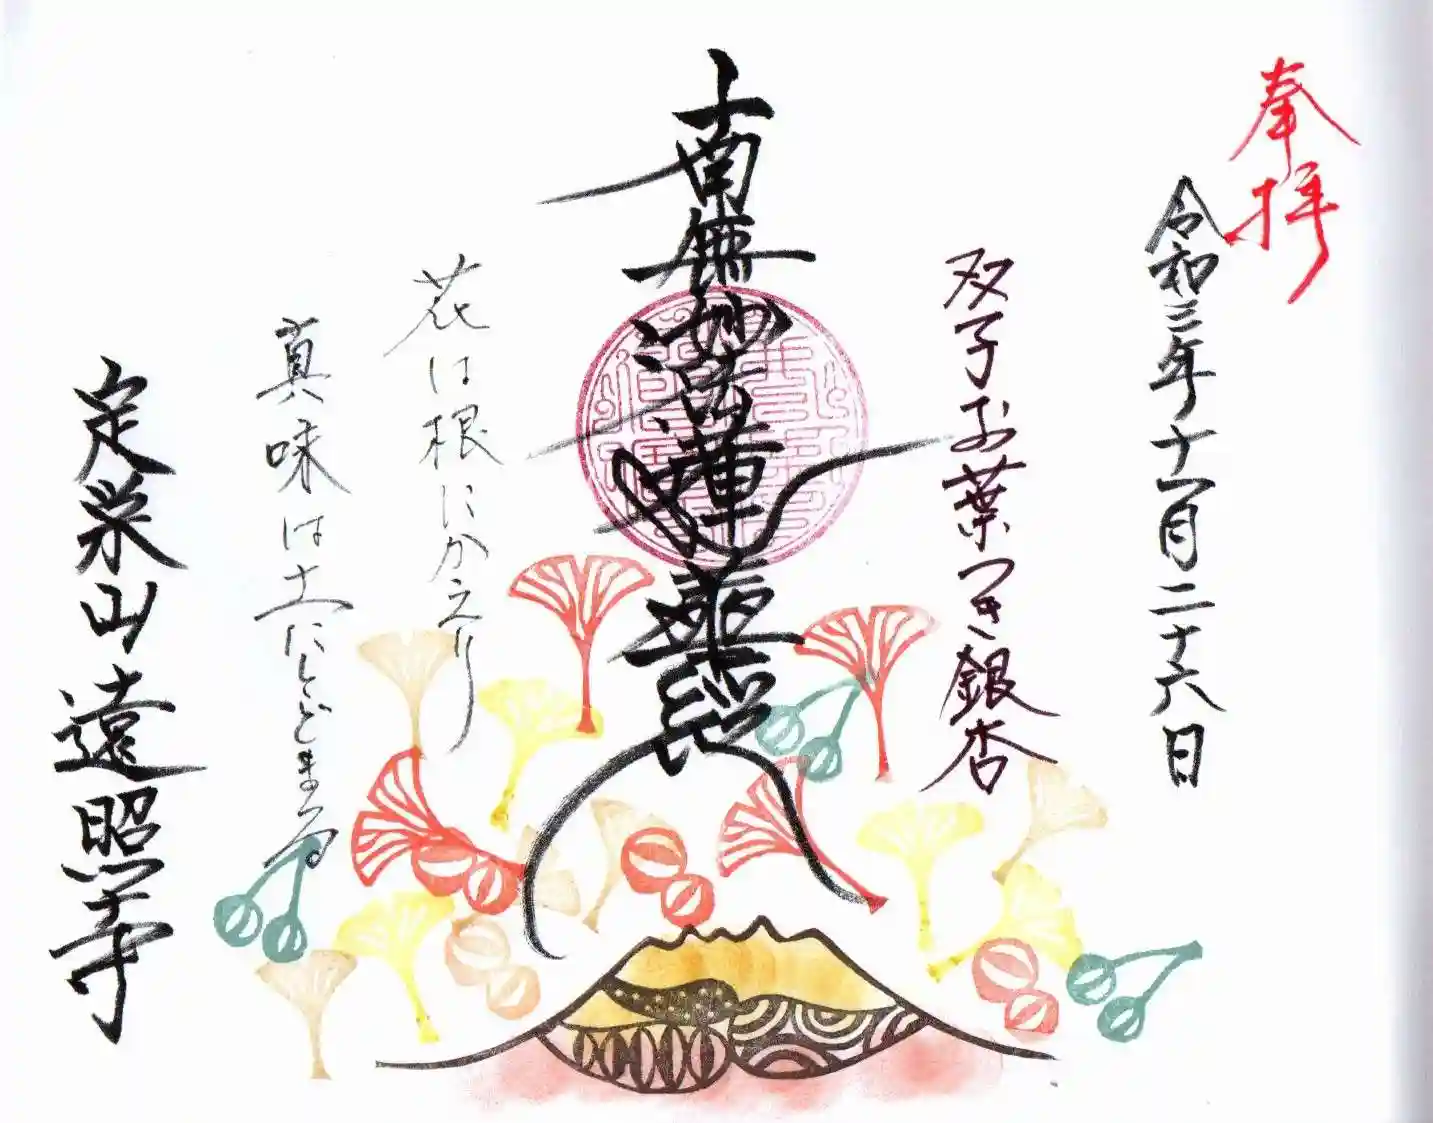 奉拝
令和三年十一月二十六日
双子お葉つき銀杏
南無妙法蓮華経
花は根にかえり
真味は土にとどまる
定栄山 遠照寺